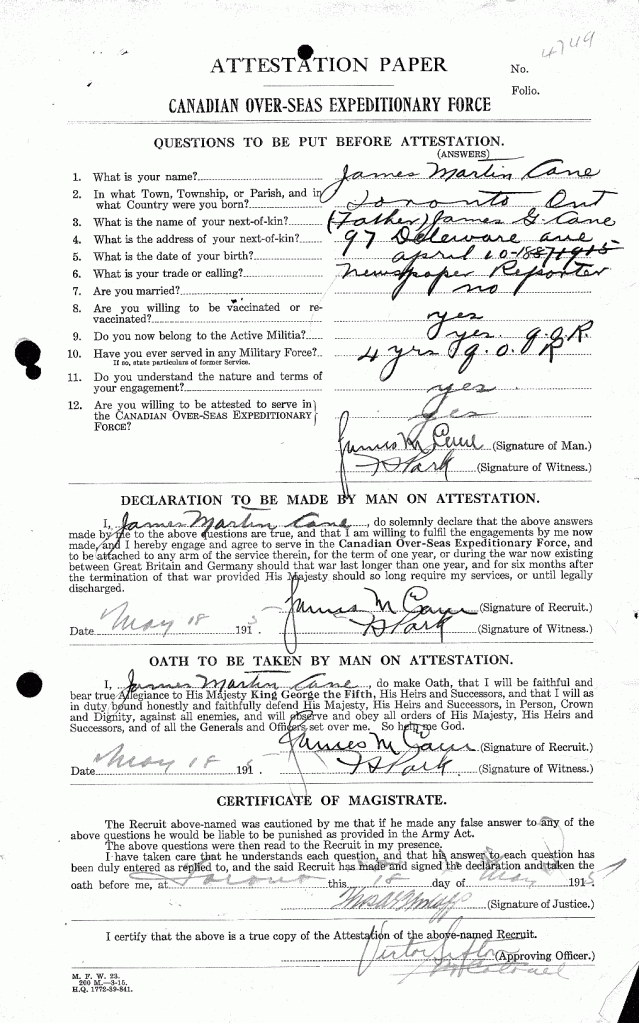 4749
ATTESTATION PAPER
No.
Folio.
CANADIAN OVER-SEAS EXPEDITIONARY FORCE
QUESTIONS TO BE PUT BEFORE ATTESTATION.
(ANSWERS)
1. What is your name? James Martin Cane
2. In what Town, Township, or Parish, and in
what Country were you born? Toronto Ont
3. What is the name of your next-of-kin? (Father) James G. Cane
4. What is the address of your next-of-kin? 97 Deleware ave
5. What is the date of your birth? april 10-1887 1915
6. What is your trade or calling? Newspaper Reporter
7. Are you married? no
8. Are you willing to be vaccinated or re-
vaccinated? yes
9. Do you now belong to the Active Militia? yes. Q.O.R.
10. Have you ever served in any Military Force? 4 yrs Q.O.R
If so, state particulars of former Service.
11. Do you understand the nature and terms of
your engagement? yes
12. Are you willing to be attested to serve in
the CANADIAN OVER-SEAS EXPEDITIONARY yes
FORCE?
James M Cane (Signature of Man.)
Park (Signature of Witness.)
DECLARATION TO BE MADE BY MAN ON ATTESTATION.
I, James Martin Cane, do solemnly declare that the above answers
made by me to the above questions are true, and that I am willing to fulfil the engagements by me now
made, and I hereby engage and agree to serve in the Canadian Over-Seas Expeditionary Force, and
to be attached to any arm of the service therein, for the term of one year, or during the war now existing
between Great Britain and Germany should that war last longer than one year, and for six months after
the termination of that war provided His Majesty should so long require my services, or until legally
discharged.
James M Cane (Signature of Recruit.)
Date May 18 1915 Park (Signature of Witness.)
OATH TO BE TAKEN BY MAN ON ATTESTATION.
I, James Martin Cane, do make Oath, that I will be faithful and
bear true Allegiance to His Majesty King George the Fifth, His Heirs and Successors, and that I will as
in duty bound honestly and faithfully defend His Majesty, His Heirs and Successors, in Person, Crown
and Dignity, against all enemies, and will observe and obey all orders of His Majesty, His Heirs and
Successors, and of all the Generals and Officers set over me. So help me God.
James M Cane (Signature of Recruit.)
Date May 18 1915 Park (Signature of Witness.)
CERTIFICATE OF MAGISTRATE.
The Recruit above-named was cautioned by me that if he made any false answer to any of the
above questions he would be liable to be punished as provided in the Army Act.
The above questions were then read to the Recruit in my presence.
I have taken care that he understands each question, and that his answer to each question has
been duly entered as replied to, and the said Recruit has made and signed the declaration and taken the
oath before me, at Toronto this 18 day of May 1915
(Signature of Justice.)
I certify that the above is a true copy of the Attestation of the above-named Recruit.
(Approving Officer.)
Lt Colonel
M. F. W. 23.
200 M.—3-15.
H.Q. 1772-39-841.